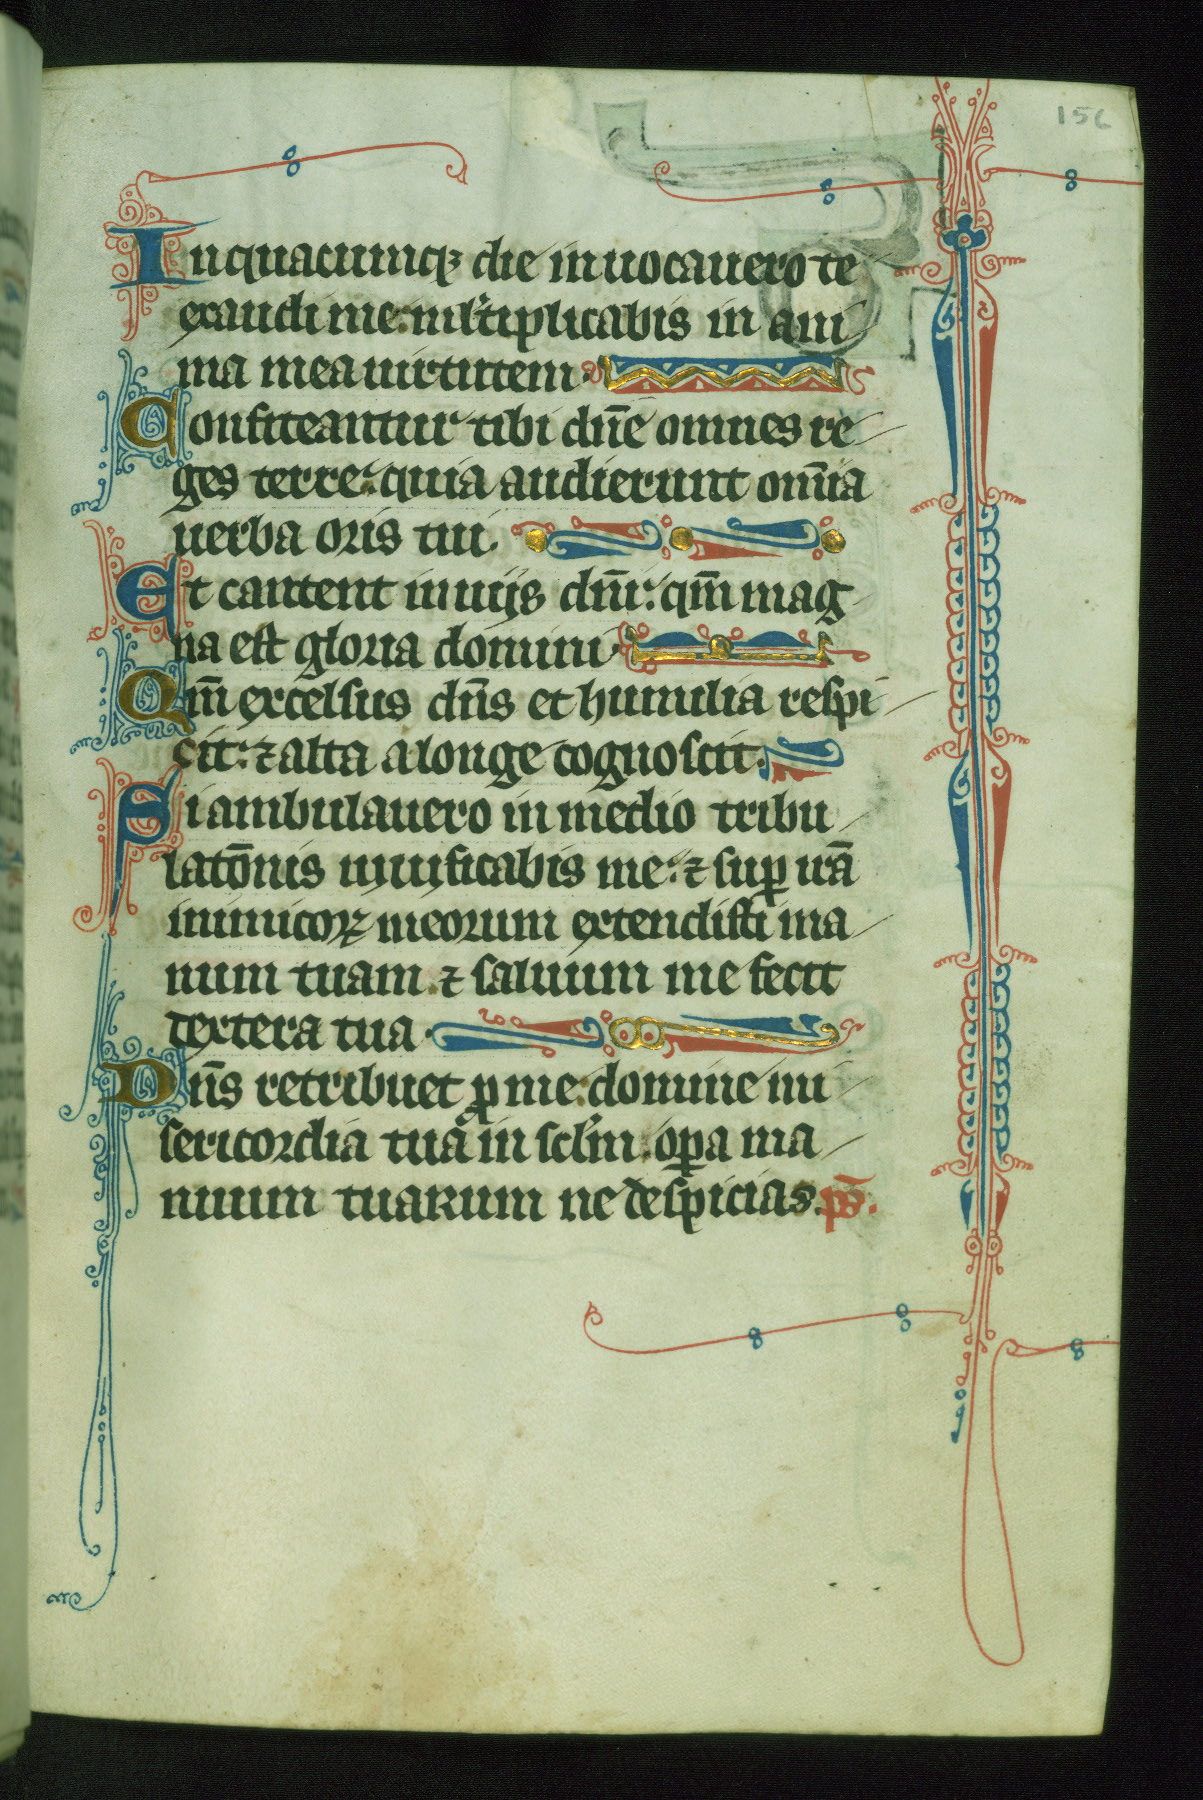 156
In quacumqꝫ die inuocauero te
exaudi me: mĺtiplicabis in ani
ma mea uirtutem.
Confiteantur tibi dn̄e omnes re
ges terre: quia audierunt om̄ia
uerba oris tui.
Et cantent in uijs dn̄i: qm̄ mag
na est gloria domini.
Qm̄ excelsus dn̄s et humilia respi
cit: ⁊ alta a longe cognoscit.
Si ambulauero in medio tribu
latōnis uiuificabis me: ⁊ suꝑ irā
inimicoꝝ meorum extendisti ma
num tuam ⁊ saluum me fecit
dextera tua.
Dn̄s retribuet ꝓ me: domine mi
sericordia tua in scĺm: oꝑa ma
nuum tuarum ne despicias. ps̄.